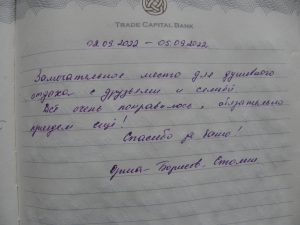 TRADE CAPITAL BANK
02.09.2022 – 05.09.2022
Замечательное место для душевного
отдыха с друзьями и семьей
Всё очень понравилось, обязательно
приедем ещё!
Спасибо за баню!
Борисов - Столин